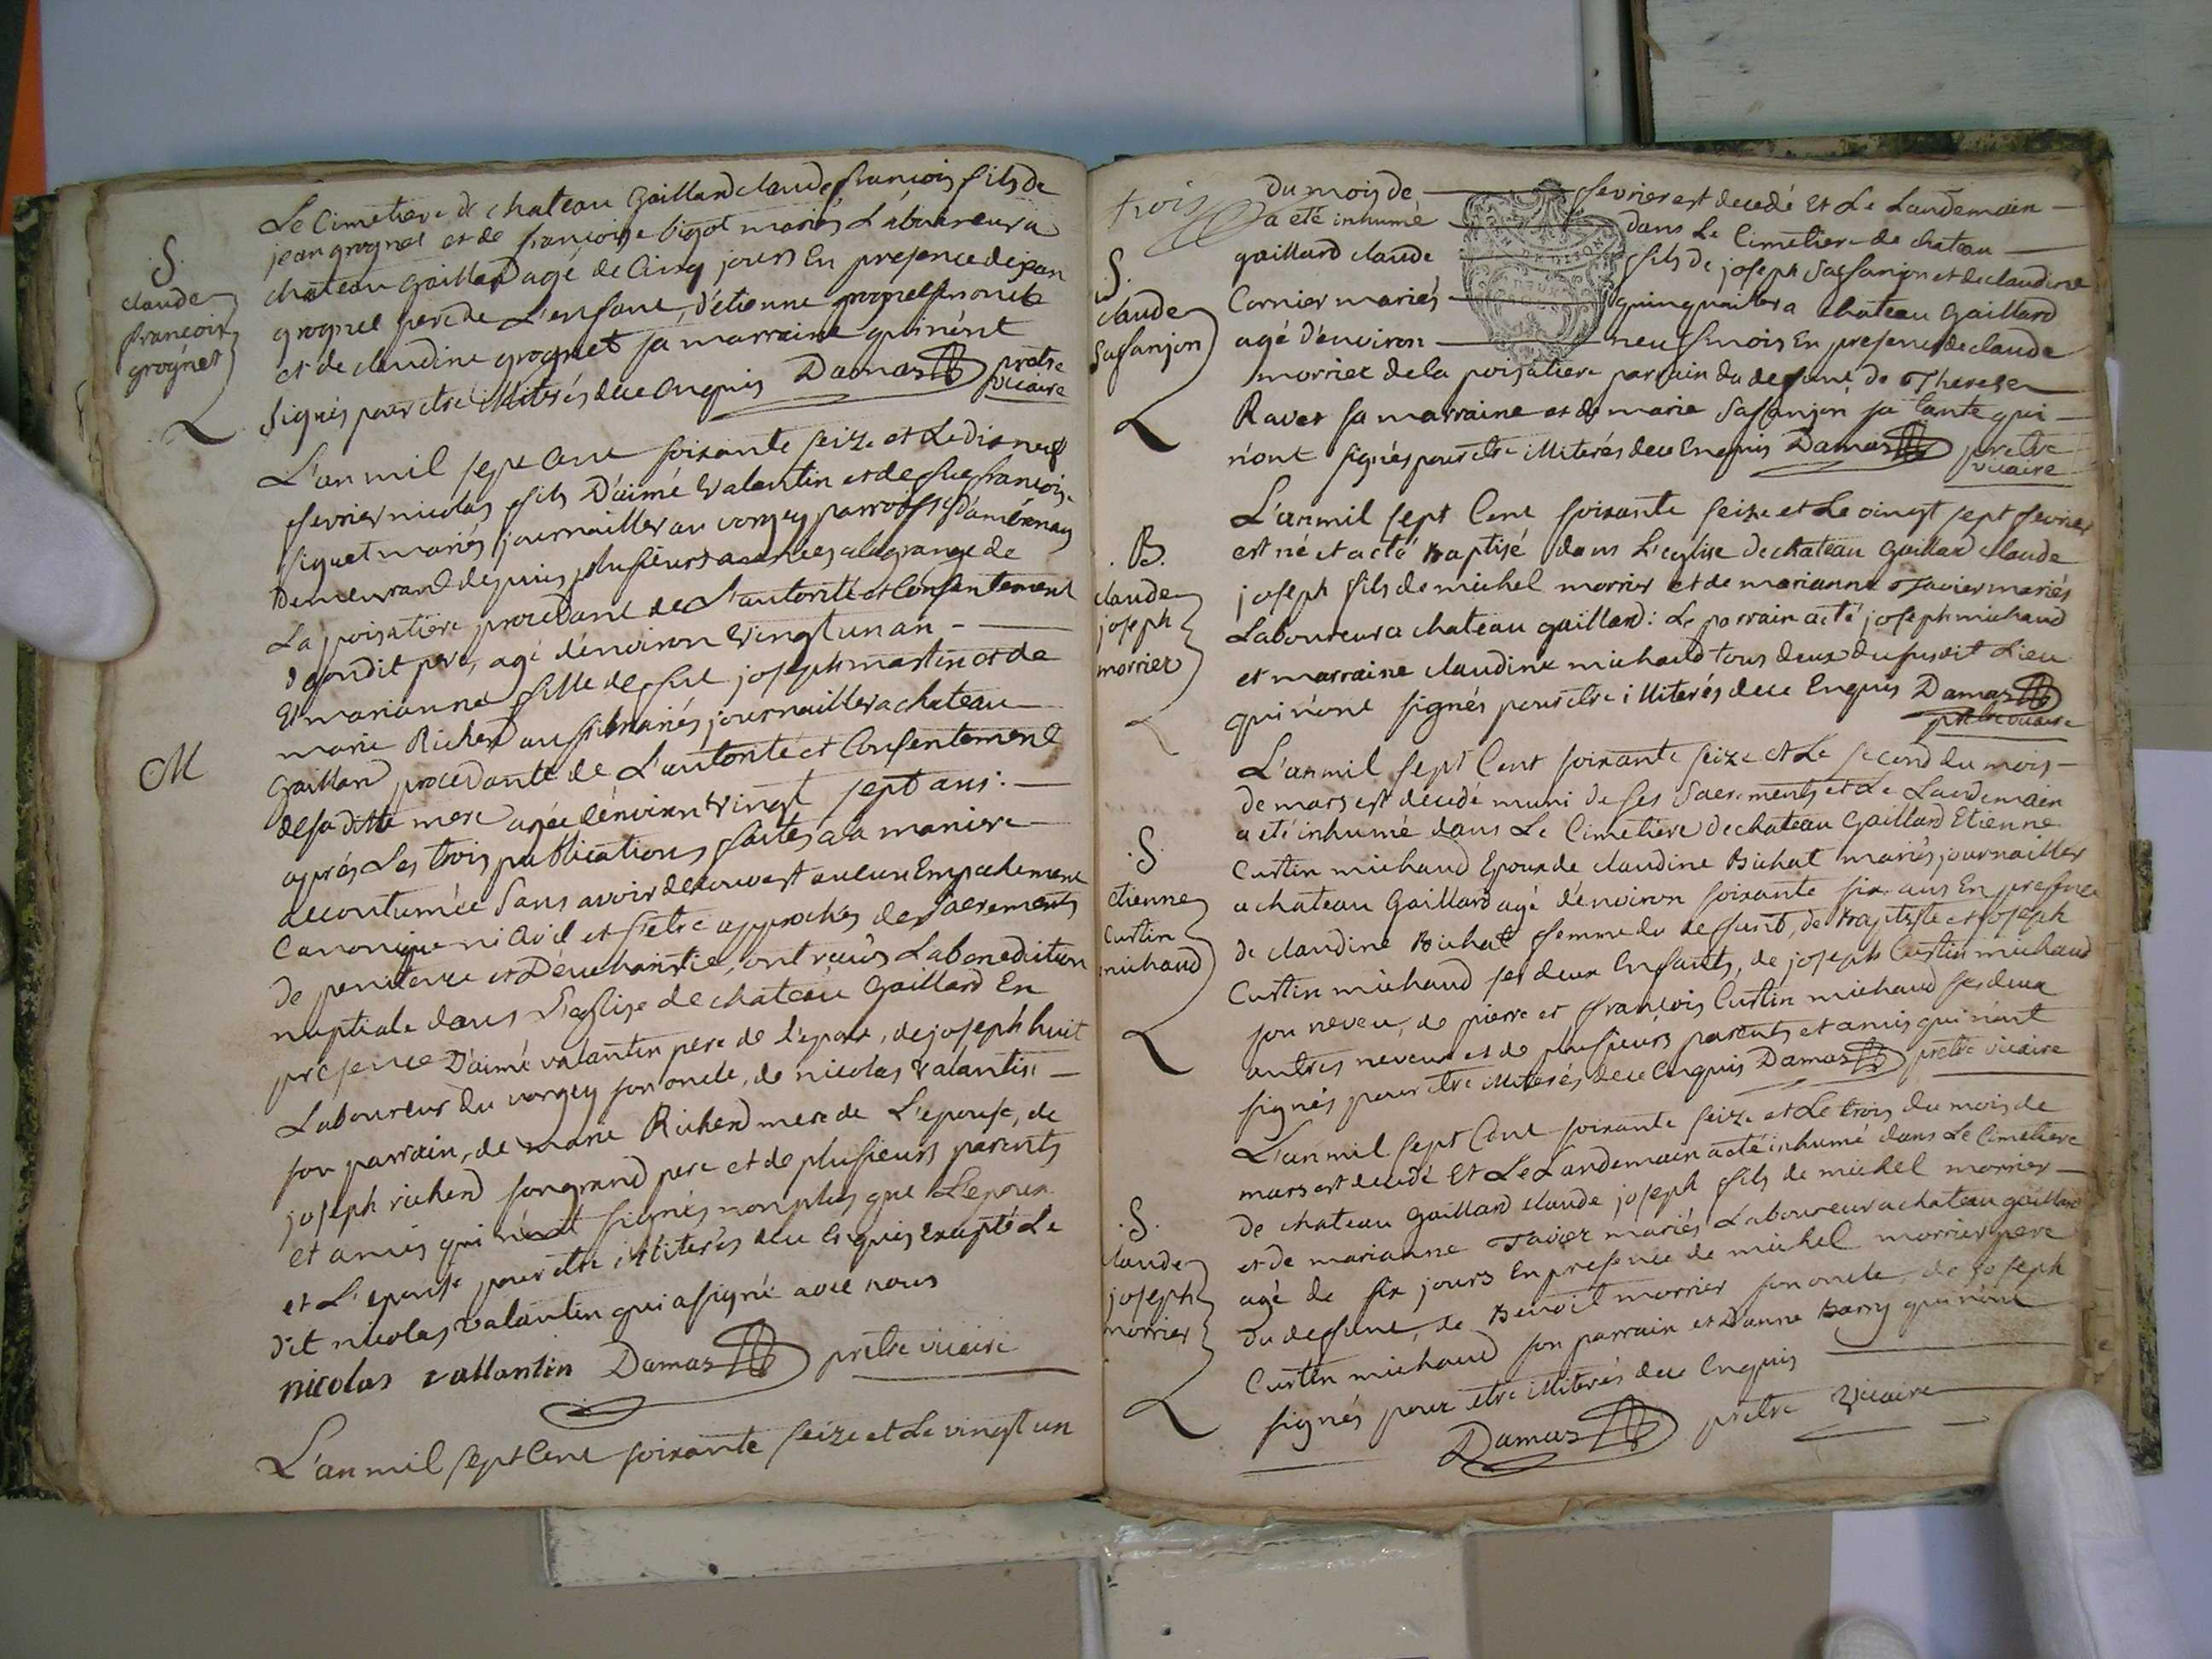 Le Cimetiere de chateau Gaillard claude françois fils de
jean grognet et de françoise bigot mariés Laboureur a
chateau Gaillard agé de Cinq jours En presence de jean
grognet pere de L'enfant, d'étienne grognet son oncle
et de claudine grognet sa marraine qui n'ont
signés pour etre illiterés de ce Enquis Damas prêtre
vicaire
S.
claude
françois
grognet
L'an mil sept Cent soixante seize et Le dix neuf
fevrier nicolas fils D'aimé Valentin et de fue françoise
siquet mariés journaillier au vorgey parroisse d'ambronay
Demeurand depuis plusieurs années a la grange de
La poisatiere procedant de L'autorité et Consentement
de son dit pere, agé d'environ Vingt un an -
Et marianne fille de feu joseph martin et de
marie Richerd aussi mariés journaillier a chateau
Gaillard procedante de L'autorité et Consentement
de sa ditte mere agée d'environ Vingt sept ans :
aprés Les trois publications faites a la maniere
accoutumée Sans avoir decouvert aucun Empechement
Canonique ni Civil et s'etre approchés des sacrements
de penitence et D'eucharistie, ont reçus La benediction
nuptiale dans L'eglise de chateau Gaillard En
presence D'aimé valantin pere de l'epoux, de joseph huit
Laboureur du vorgey son oncle, de nicolas Valantin
son parrain, de marie Richerd mere de L'epouse, de
joseph richerd son grand pere et de plusieurs parents
et amis qui n'ont signés non plus que L'epoux
et L'epouse pour etre illiterés de ce Enquis Excepté Le
dit nicolas valantin qui a signé avec nous
nicolas vallantin Damas prêtre vicaire
M
L'an mil sept Cent soixante seize et Le vingt un
trois
du mois de fevrier est decedé Et Le Landemain
a eté inhumé dans Le Cimetiere de chateau
gaillard claude fils de joseph Saffanjon et de claudine
Cornier mariés journaillier a chateau Gaillard
agé d'environ neuf mois En presence de claude
morrier de la poisatiere parrain du defunt de Therese
Ravet sa marraine et de marie Saffanjon sa tante qui
n'ont signés pour etre illiterés de ce Enquis Damas prêtre
vicaire
S.
claude
Saffanjon
L'an mil sept Cent soixante seize et Le vingt sept fevrier
est né et a eté Baptisé dans L'eglise de chateau Gaillard claude
joseph fils de michel morrier et de marianne Tavier mariés
Laboureur a chateau gaillard : Le parrain a eté joseph michaud
et marraine claudine michaud tous deux du susdit Lieu
qui n'ont signés pour etre illiterés de ce Enquis Damas
prêtre vicaire
B.
claude
joseph
morrier
L'an mil sept Cent soixante seize et Le second du mois
de mars est decedé muni de ses Sacrements et Le Landemain
a eté inhumé dans Le Cimetiere de chateau Gaillard Etienne
Curtin michaud Epoux de claudine Bichat mariés journaillier
a chateau Gaillard agé d'environ soixante six ans En presence
de claudine Bichat femme du deffunt, de Baptiste et joseph
Curtin michaud ses deux Enfants, de joseph Curtin michaud
son neveu, de pierre et françois Curtin michaud ses deux
autres neveux et de plusieurs parents et amis qui n'ont
signés pour etre illiterés de ce Enquis Damas prêtre vicaire
S
etienne
Curtin
michaud
L'an mil sept Cent soixante seize et Le trois du mois de
mars est decedé Et Le Landemain a eté inhumé dans Le Cimetiere
de chateau Gaillard claude joseph fils de michel morrier
et de marianne Tavier mariés Laboureur a chateau gaillard
agé de six jours En presence de michel morrier pere
du deffunt, de Benoit morrier son oncle, de joseph
Curtin michaud son parrain et D'anne Barry qui n'ont
signés pour etre illiterés de ce Enquis
Damas prêtre Vicaire
S.
claude
joseph
morrier